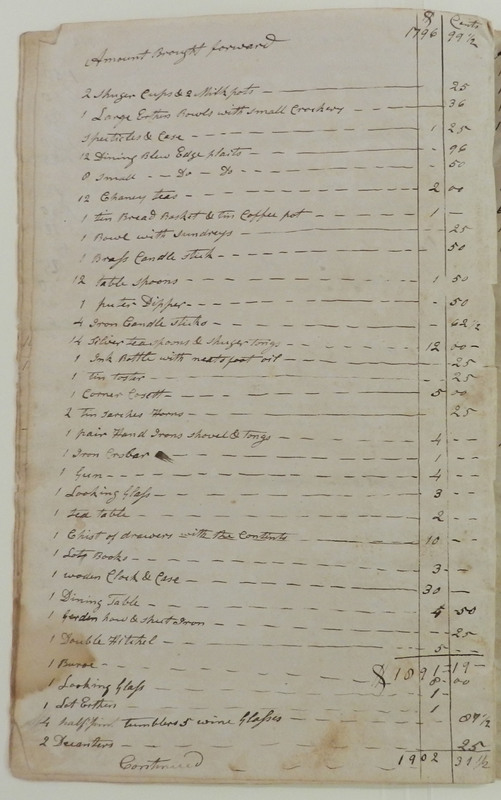 $ Cents
Amount Brought forward 1796 99 1/2
2 Shuger Cups & 2 Milk pots - - - 25
1 Large Erthin Bowls with Small Crockery - 36
Specticles & Case - - - - 1 25
12 Dining Blew Edge plaits - - - 96
8 Small - - Do - Do - - - 50
12 Chaney teas - - - 2 00
1 tin Bread Basket & tin Coffee pot - - - 1 -
1 Bowl with Sundreys - - - 25
1 Brass Candle stick - - - 50
12 table Spoons - - - 1 50
1 puter Dipper - - - 50
4 Iron Candle sticks - - - 62 1/2
14 Silver teaspoons & Shuger tongs - - 12 00 -
1 Ink Bottle with neatsfoot oil - - - 25
1 tin toster - - - 25
1 Corner Cosett - - - 5 00
2 tin Horns - - - 25
1 pair Hand Irons Shovel & tongs - - - 4 - -
1 Iron Crobar - - - 1 - -
1 Gun - - - 4 - -
1 Looking Glass - - - 3 - -
1 tea table - - - 2 - -
1 Chist of drawers with the Contents - - 10 - -
1 Lots Books - - - 3 - -
1 woden Clock & Case - - - 30 - -
1 Dining Table - - - 4 50
1 Garden how & Iron - - - 25
1 Double Hitchel - - - 5 - -
$ 1891 19 -
1 Buroe - - - 8 00
1 Looking Glass - - - 1 -
1 Lot Erthin - - - 1
4 half pint tumblers 5 wine Glasses - - - 87 1/2
2 Decanters - - - 25
Continued - - - 1902 31 1/2